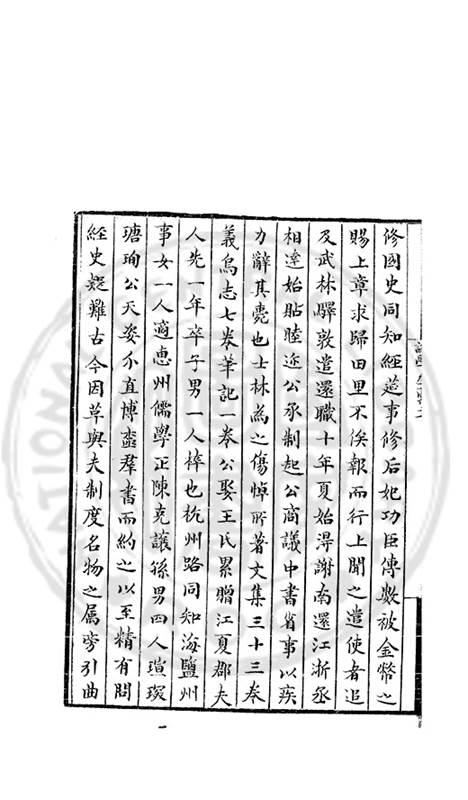 修國史同知經筵事修后妃功臣傳數被金幣之
賜上章求歸田里不俟報而行上聞之遣使者追
及武林驛敦遣還職十年夏始得謝南還江浙丞
相達始貼睦迩公承制起公商議中書省事以疾
力辭其薨也士林為之傷悼所著文集三十三卷
義烏志七卷筆記一卷公娶王氏累贈江夏郡夫
人先一年卒子男一人梓也杭州路同知海鹽州
事女一人適惠州儒學正陳克讓孫男四人瑄琛
瑭珣公天姿介直博盡群書而約之以至精有問
經史疑難古今因草與夫制度名物之属旁引曲